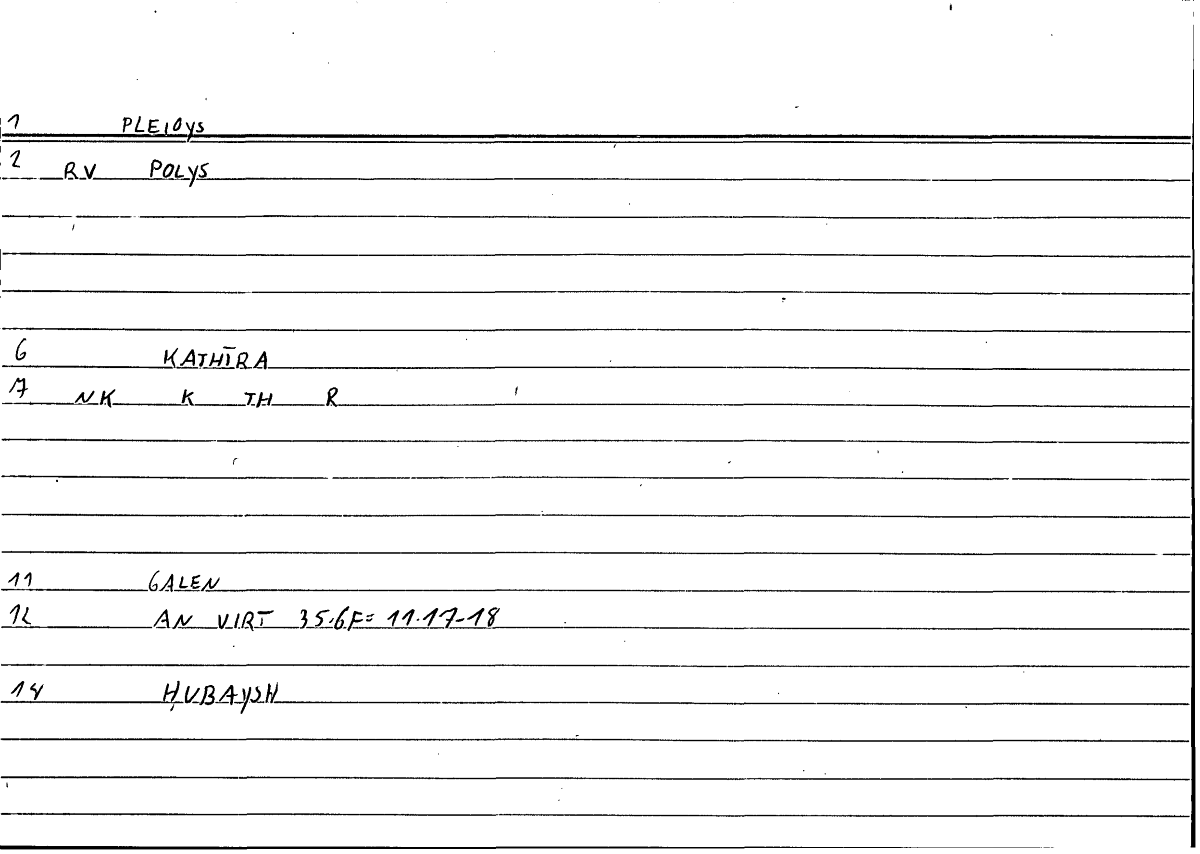 1 PLEIOYS
2 RV POLYS
6 KATHĪRA
7 NK K TH R
11 GALEN
12 AN VIRT 35.6F= 11.17-18
14 ḤUBAYSH